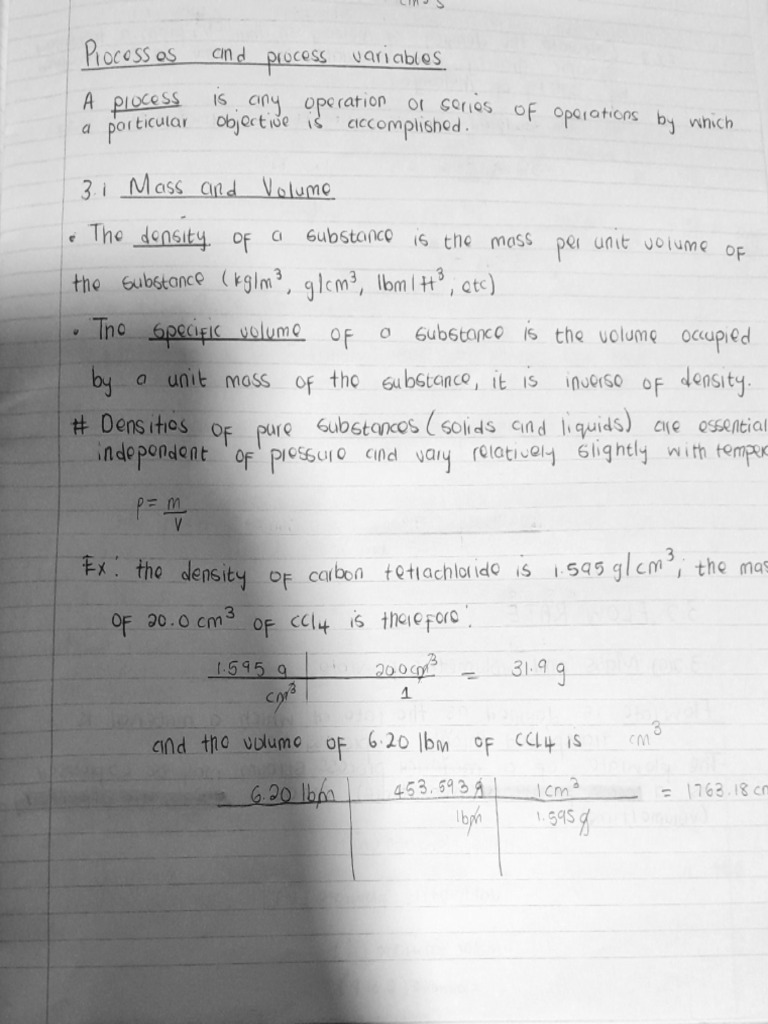 Processes and process variables
A process is any operation or series of operations by which
a particular objective is accomplished.
3.1 Mass and Volume
• The density of a substance is the mass per unit volume of
the substance (kg/m³, g/cm³, lbm/ft³, etc)
• The specific volume of a substance is the volume occupied
by a unit mass of the substance, it is inverse of density.
# Densities of pure substances (solids and liquids) are essential
independent of pressure and vary relatively slightly with temper
ρ = m
V
Ex: the density of carbon tetrachloride is 1.595 g/cm³; the mas
of 20.0 cm³ of CCl4 is therefore:
1.595 g | 20.0 cm³ = 31.9 g
cm³ | 1
and the volume of 6.20 lbm of CCl4 is cm³
= 6.20 lbm | 453.593 g | 1 cm³ = 1763.18 cm
lbm | 1.595 g